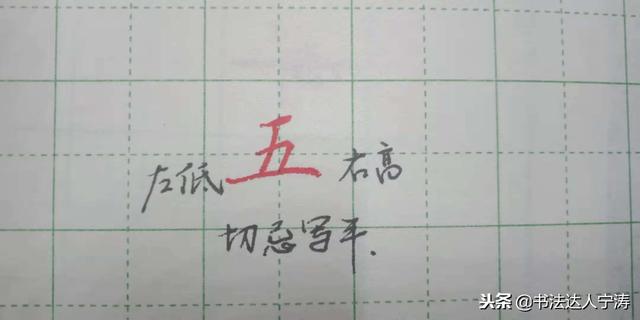 左低五右高
切忌写平.
头条@书法达人宁涛